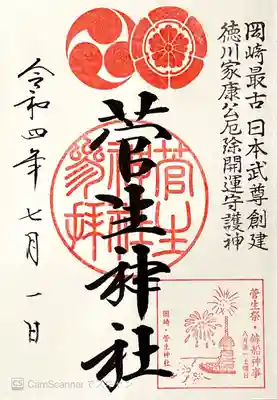 岡崎最古 日本武尊創建
徳川家康公厄除開運守護神
菅生神社
参拝
菅生
神社
令和四年 七月 一日
菅生祭・鉾船神事
八月第一土曜日
岡崎・菅生神社
CamScanner で